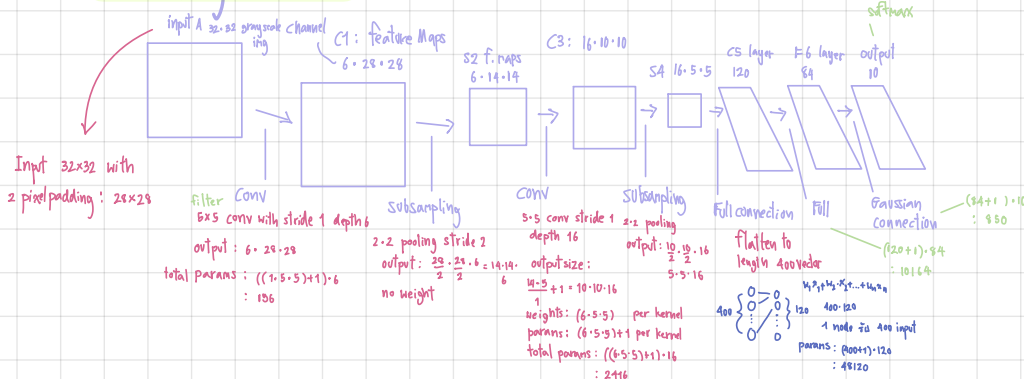 input A 32·32 grayscale channel
img
C1: feature Maps
6·28·28
S2 f.maps
6·14·14
C3: 16·10·10
S4 16·5·5
C5 layer
120
F6 layer
84
output
10
softmax
Input 32×32 with
2 pixel padding : 28×28
filter
Conv
5×5 conv with stride 1 depth 6
output : 6·28·28
total params : ((1·5·5)+1)·6
: 156
subsampling
2·2 pooling stride 2
output : 28/2 · 28/2 · 6 = 14·14·6
no weight
Conv
5·5 conv stride 1
depth 16
output size :
14-5/1 + 1 = 10·10·16
weights : (6·5·5) per kernel
params : (6·5·5)+1 per kernel
total params : ((6·5·5)+1)·16
: 2416
subsampling
2·2 pooling
output : 10/2 · 10/2 · 16
5·5·16
Full connection
flatten to
length 400 vector
400
120
w₁x₁+w₂·x₂+...+wₙxₙ
400·120
1 node
400 input
params : (400+1)·120
: 48120
Full
(120+1)·84
: 10164
Gaussian
connection
(84+1)·10
: 850